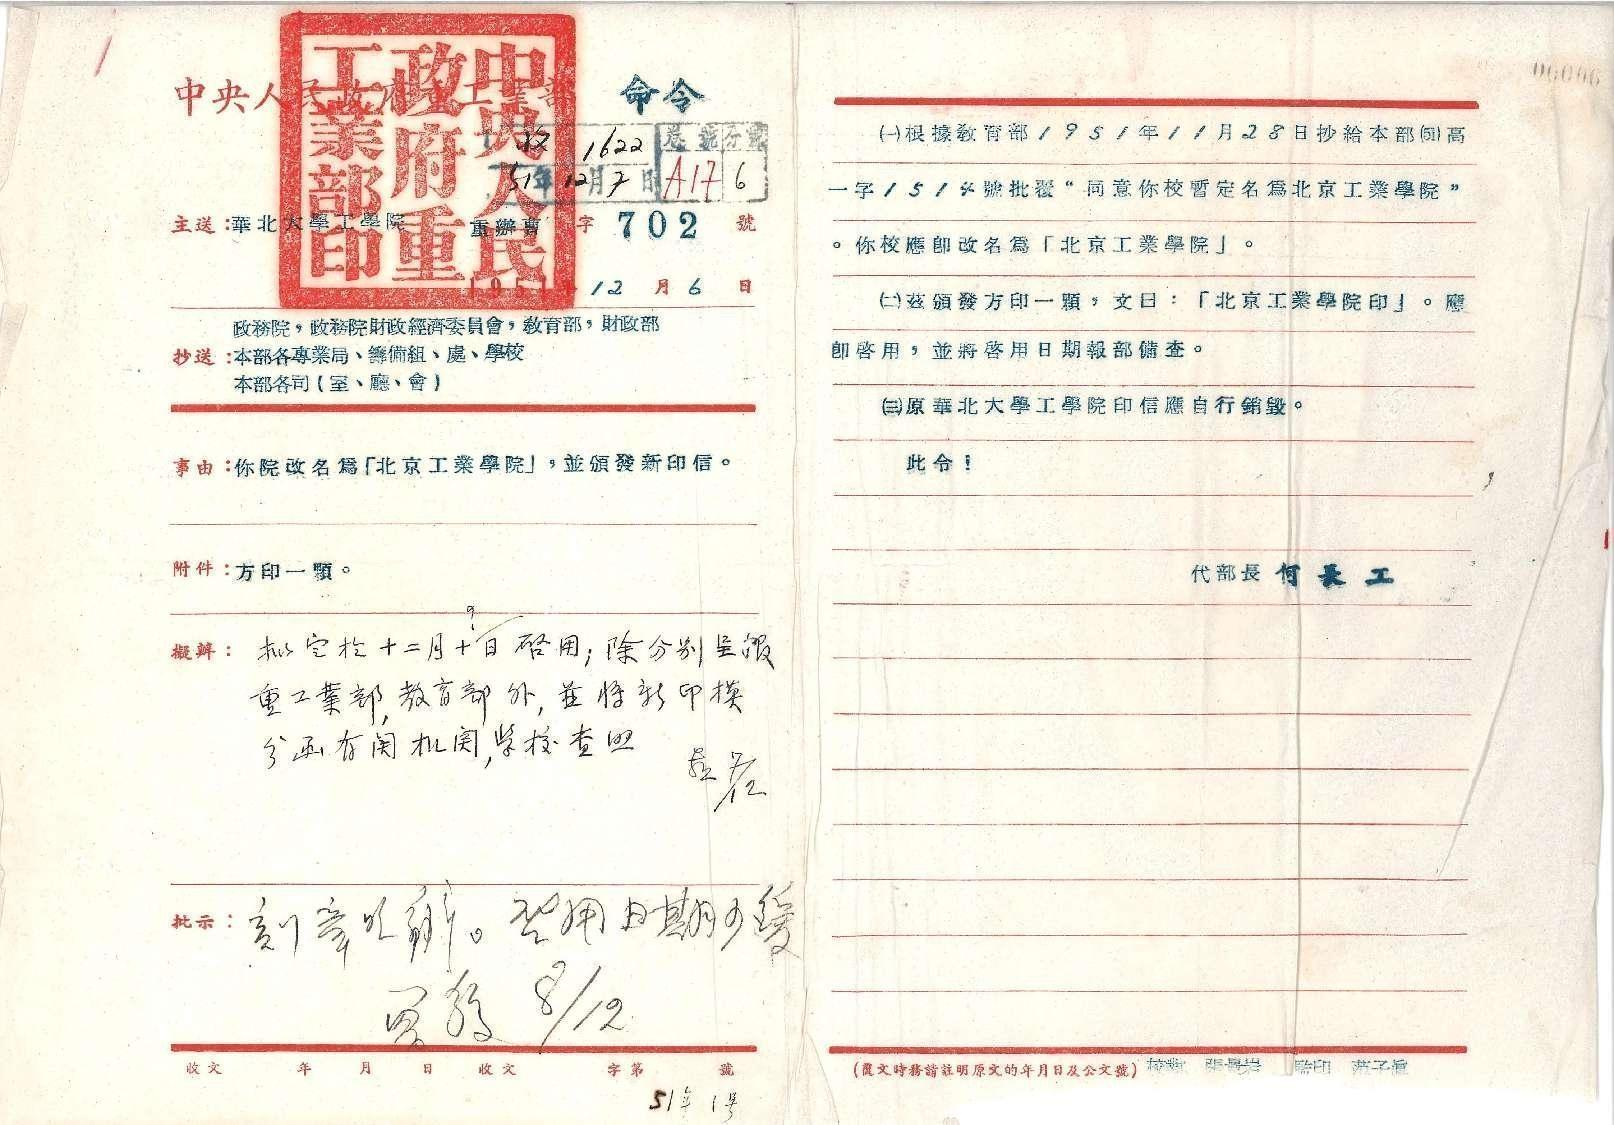 中央人民政府重工業部 命令
中央人民
政府重
工業部印
收 1622
卷號 分號
51年12月7日 A17 6
主送：華北大學工學院 重辦曹字702號
1951年12月6日
政務院，政務院財政經濟委員會，敎育部，財政部
抄送：本部各專業局、籌備組、處、學校
本部各司（室、廳、會）
事由：你院改名爲「北京工業學院」，並頒發新印信。
附件：方印一顆。
擬辦：拟定於十二月十日啓用；除分别呈报
重工業部，教育部外，並将新印模
分函有関机関，学校查照
批示：刻章照辦。啓用日期可緩
8/12
收文 年 月 日 收文 字第 號
51年1号
00006
㈠根據敎育部1951年11月28日抄給本部㈣高
一字1514號批覆“同意你校暫定名爲北京工業學院”
。你校應卽改名爲「北京工業學院」。
㈡茲頒發方印一顆，文曰：「北京工業學院印」。應
卽啓用，並將啓用日期報部備查。
㈢原華北大學工學院印信應自行銷毀。
此令！
代部長 何長工
（覆文時務請註明原文的年月日及公文號）
監印